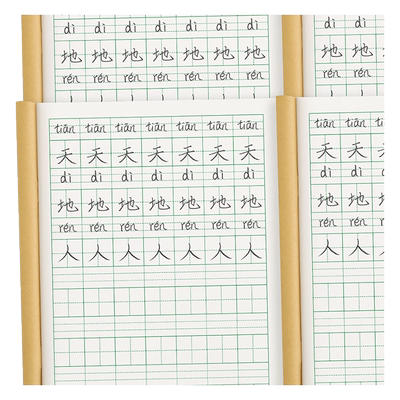 dì dì dì dì dì dì dì
地 地 地 地 地 地 地
rén rén rén rén rén rén rén
dì dì
地 地
rén rén
tiān tiān tiān tiān tiān tiān tiān
天 天 天 天 天 天 天
dì dì dì dì dì dì dì
地 地 地 地 地 地 地
rén rén rén rén rén rén rén
人 人 人 人 人 人 人
tiān tiān
天 天
dì dì
地 地
rén rén
人 人